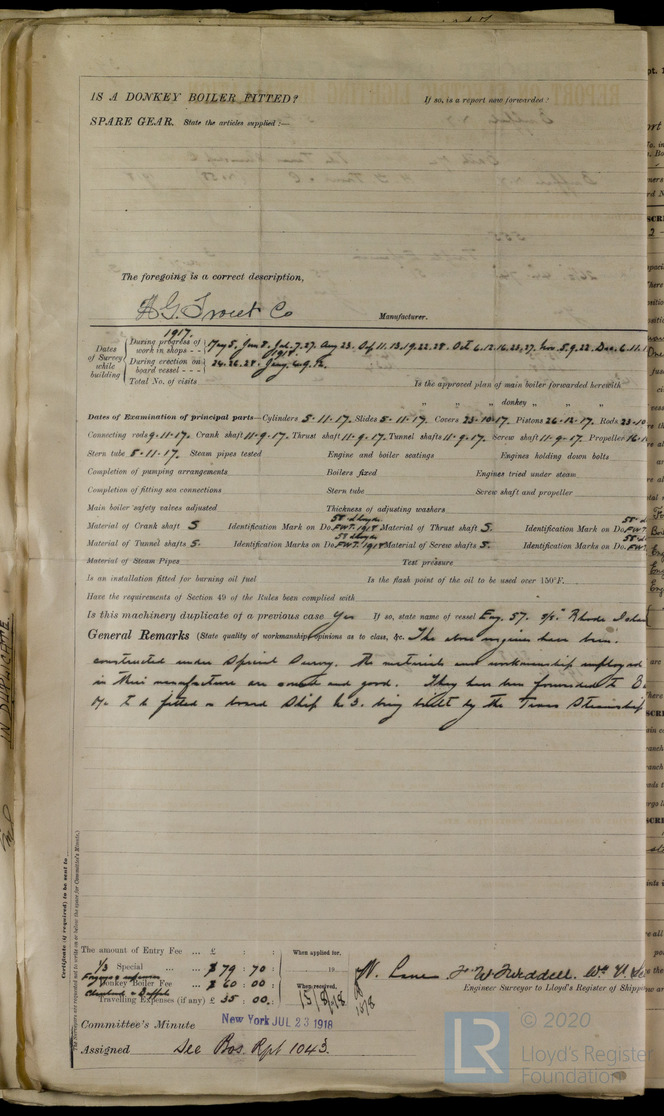 IS A DONKEY BOILER FITTED? If so, is a report now forwarded?
SPARE GEAR. State the articles supplied :—
The foregoing is a correct description,
H.G. Trout Co Manufacturer.
1917.
Dates of Survey while building
During progress of work in shops - - May 5. Jun 8. Jul. 7. 27. Aug 23. Sep 11. 13. 19. 22. 28. Oct 6. 12. 16. 23. 27. Nov. 5. 9. 22. Dec. 6. 11.
1918
During erection on board vessel - - - 24. 26. 28. Jany. 4. 9. 12.
Total No. of visits Is the approved plan of main boiler forwarded herewith
" " " donkey " " "
Dates of Examination of principal parts—Cylinders 5-11-17. Slides 5-11-17. Covers 23-10-17. Pistons 26-12-17. Rods 23-10
Connecting rods 9-11-17. Crank shaft 11-9-17. Thrust shaft 11-9-17. Tunnel shafts 11-9-17. Screw shaft 11-9-17. Propeller 16-1
Stern tube 8-11-17 Steam pipes tested Engine and boiler seatings Engines holding down bolts
Completion of pumping arrangements Boilers fixed Engines tried under steam
Completion of fitting sea connections Stern tube Screw shaft and propeller
Main boiler safety valves adjusted Thickness of adjusting washers
Material of Crank shaft S Identification Mark on Do. 58 Lloyds FWT. 1918 Material of Thrust shaft S. Identification Mark on Do. 58 FWT
Material of Tunnel shafts S. Identification Marks on Do. 58 Lloyds FWT. 1918 Material of Screw shafts S. Identification Marks on Do. 58 FWT
Material of Steam Pipes Test pressure
Is an installation fitted for burning oil fuel Is the flash point of the oil to be used over 150°F.
Have the requirements of Section 49 of the Rules been complied with
Is this machinery duplicate of a previous case Yes If so, state name of vessel Eng. 57. S/S. Rhode Islan
General Remarks (State quality of workmanship, opinions as to class, &c. The above engines have been
constructed under Special Survey. The materials and workmanship employed
in their manufacture are sound and good. They have been forwarded to
to be fitted on board Ship No 3. being built by the Texas Steamship
Certificate (if required) to be sent to
The Surveyors are requested not to write on or below the space for Committee's Minute.
IN DUPLICATE.
The amount of Entry Fee ... £ : : When applied for,
1/3 Special ... ... $ 79 : 70 : 19
Donkey Boiler Fee ... $ 60 : 00 : When received,
Cleveland & Buffalo
Travelling Expenses (if any) £ 35 : 00. 15/8/18
Engineer Surveyor to Lloyd's Register of Shipp
Committee's Minute New York JUL 23 1918
Assigned See Bos. Rpt 1043.
LR © 2020
Lloyd's Register
Foundation